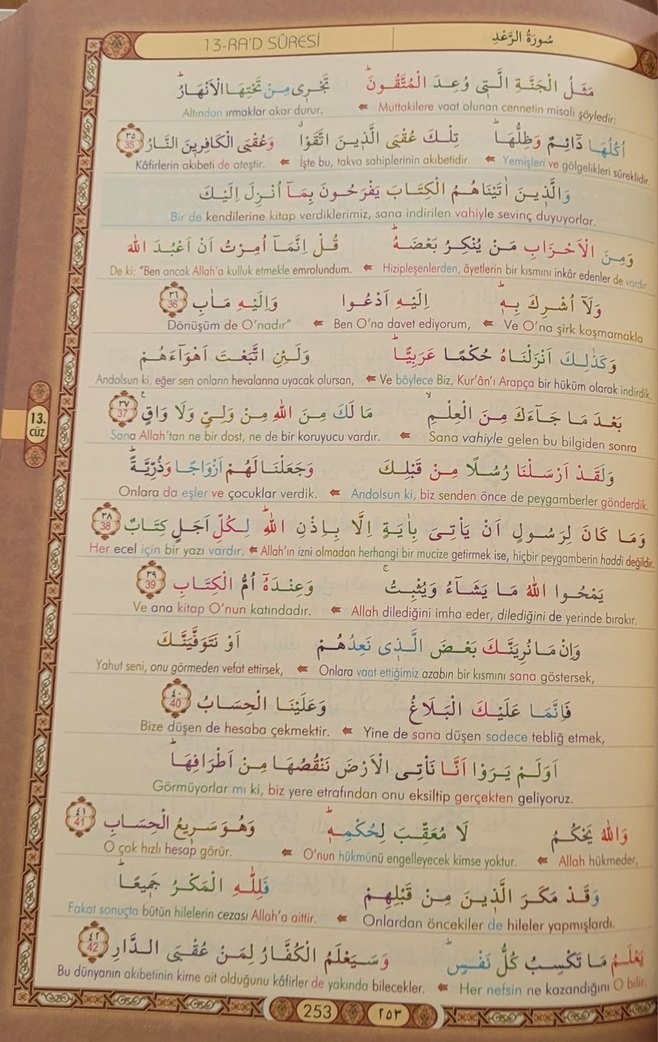 13-RA'D SÛRESİ
سُورَةُ الرَّعْدِ
مَثَلُ الْجَنَّةِ الَّتٖى وُعِدَ الْمُتَّقُونَؕ تَجْرٖى مِنْ تَحْتِهَا الْاَنْهَارُؕ
Muttakilere vaat olunan cennetin misali şöyledir: Altından ırmaklar akar durur,
اُكُلُهَا دَٓائِمٌ وَظِلُّهَاؕ تِلْكَ عُقْبَى الَّذٖينَ اتَّقَوْا وَعُقْبَى الْكَافِرٖينَ النَّارُ ٣٥ 35
Yemişleri ve gölgelikleri süreklidir. İşte bu, takva sahiplerinin akıbetidir. Kâfirlerin akıbeti de ateştir.
وَالَّذٖينَ اٰتَيْنَاهُمُ الْكِتَابَ يَفْرَحُونَ بِمَٓا اُنْزِلَ اِلَيْكَ
Bir de kendilerine kitap verdiklerimiz, sana indirilen vahiyle sevinç duyuyorlar.
وَمِنَ الْاَحْزَابِ مَنْ يُنْكِرُ بَعْضَهُؕ قُلْ اِنَّمَٓا اُمِرْتُ اَنْ اَعْبُدَ اللّٰهَ
Hizipleşenlerden, âyetlerin bir kısmını inkâr edenler de vardır De ki: "Ben ancak Allah'a kulluk etmekle emrolundum.
وَلَٓا اُشْرِكَ بِهٖؕ اِلَيْهِ اَدْعُوا وَاِلَيْهِ مَاٰبِ ٣٦ 36
Ve O'na şirk koşmamakla Ben O'na davet ediyorum, Dönüşüm de O'nadır"
وَكَذٰلِكَ اَنْزَلْنَاهُ حُكْمًا عَرَبِيًّاؕ وَلَئِنِ اتَّبَعْتَ اَهْوَٓاءَهُمْ
Ve böylece Biz, Kur'ân'ı Arapça bir hüküm olarak indirdik. Andolsun ki, eğer sen onların hevalarına uyacak olursan,
بَعْدَ مَا جَٓاءَكَ مِنَ الْعِلْمِۙ مَا لَكَ مِنَ اللّٰهِ مِنْ وَلِىٍّ وَلَا وَاقٍ ٣٧ 37
Sana vahiyle gelen bu bilgiden sonra Sana Allah'tan ne bir dost, ne de bir koruyucu vardır.
13.
CÜZ
وَلَقَدْ اَرْسَلْنَا رُسُلًا مِنْ قَبْلِكَ وَجَعَلْنَا لَهُمْ اَزْوَاجًا وَذُرِّيَّةًؕ
Andolsun ki, biz senden önce de peygamberler gönderdik. Onlara da eşler ve çocuklar verdik.
وَمَا كَانَ لِرَسُولٍ اَنْ يَأْتِىَ بِاٰيَةٍ اِلَّا بِاِذْنِ اللّٰهِؕ لِكُلِّ اَجَلٍ كِتَابٌ ٣٨ 38
Allah'ın izni olmadan herhangi bir mucize getirmek ise, hiçbir peygamberin haddi değildir. Her ecel için bir yazı vardır.
يَمْحُوا اللّٰهُ مَا يَشَٓاءُ وَيُثْبِتُۚ وَعِنْدَهُٓ اُمُّ الْكِتَابِ ٣٩ 39
Allah dilediğini imha eder, dilediğini de yerinde bırakır. Ve ana kitap O'nun katındadır.
وَاِنْ مَا نُرِيَنَّكَ بَعْضَ الَّذٖى نَعِدُهُمْ اَوْ نَتَوَفَّيَنَّكَ
Onlara vaat ettiğimiz azabın bir kısmını sana göstersek, Yahut seni, onu görmeden vefat ettirsek,
فَاِنَّمَا عَلَيْكَ الْبَلَاغُ وَعَلَيْنَا الْحِسَابُ ٤٠ 40
Yine de sana düşen sadece tebliğ etmek, Bize düşen de hesaba çekmektir.
اَوَلَمْ يَرَوْا اَنَّا نَأْتِى الْاَرْضَ نَنْقُصُهَا مِنْ اَطْرَافِهَاؕ
Görmüyorlar mı ki, biz yere etrafından onu eksiltip gerçekten geliyoruz.
وَاللّٰهُ يَحْكُمُ لَا مُعَقِّبَ لِحُكْمِهٖؕ وَهُوَ سَرٖيعُ الْحِسَابِ ٤١ 41
Allah hükmeder, O'nun hükmünü engelleyecek kimse yoktur. O çok hızlı hesap görür.
وَقَدْ مَكَرَ الَّذٖينَ مِنْ قَبْلِهِمْ فَلِلّٰهِ الْمَكْرُ جَمٖيعًاؕ
Onlardan öncekiler de hileler yapmışlardı. Fakat sonuçta bütün hilelerin cezası Allah'a aittir.
يَعْلَمُ مَا تَكْسِبُ كُلُّ نَفْسٍؕ وَسَيَعْلَمُ الْكُفَّارُ لِمَنْ عُقْبَى الدَّارِ ٤٢ 42
Her nefsin ne kazandığını O bilir. Bu dünyanın akıbetinin kime ait olduğunu kâfirler de yakında bilecekler.
253 ٢٥٣